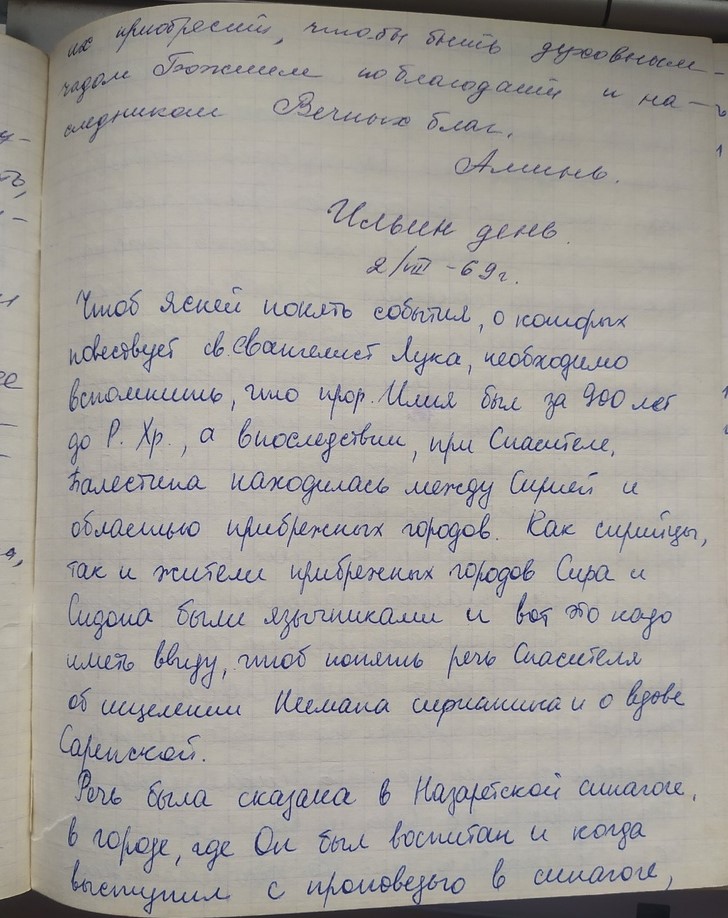 их приобрести, чтобы быть духовным
чадом Божиим по благодати и на-
следником Вечных благ.
Аминь.
Ильин день.
2/VIII - 69 г.
Чтоб ясней понять события, о которых
повествует св. Евангелист Лука, необходимо
вспомнить, что прор. Илия был за 900 лет
до Р. Хр., а впоследствии, при Спасителе,
Палестина находилась между Сирией и
областью прибрежных городов. Как сирийцы,
так и жители прибрежных городов Сира и
Сидона были язычниками и вот это надо
иметь ввиду, чтоб понять речь Спасителя
об исцелении Неемана сириянина и о вдове
Сарепской.
Речь была сказана в Назаретской синагоге,
в городе, где Он был воспитан и когда
выступил с проповедью в синагоге,